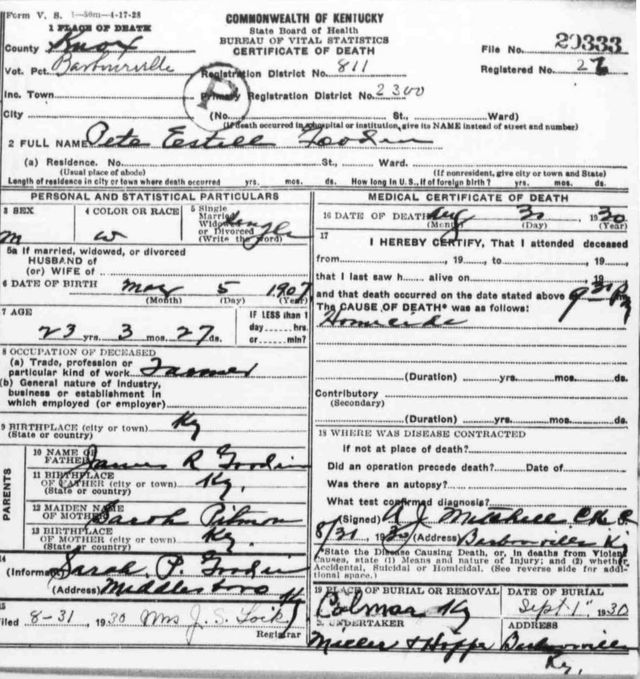 Form V. S. 1-50m-4-17-28
COMMONWEALTH OF KENTUCKY
State Board of Health
BUREAU OF VITAL STATISTICS
CERTIFICATE OF DEATH
1 PLACE OF DEATH
County Knox
File No. 20333
Vot. Pct. Barbourville Registration District No. 811 Registered No.
Inc. Town Primary Registration District No. 2300
P
City (No. St., Ward)
(If death occurred in a hospital or institution, give its NAME instead of street and number)
2 FULL NAME Pete Estill Goodin
(a) Residence. No. St., Ward.
(Usual place of abode) (If nonresident, give city or town and State)
Length of residence in city or town where death occurred yrs. mos. ds. How long in U. S., if of foreign birth? yrs. mos. ds.
PERSONAL AND STATISTICAL PARTICULARS
3 SEX 4 COLOR OR RACE 5 Single Married Widowed or Divorced (Write the word)
m w Single
5a If married, widowed, or divorced
HUSBAND of
(or) WIFE of
6 DATE OF BIRTH May 5 1907
(Month) (Day) (Year)
7 AGE IF LESS than 1 day hrs. or min?
23 yrs. 3 mos. 27 ds.
8 OCCUPATION OF DECEASED
(a) Trade, profession or
particular kind of work Farmer
(b) General nature of industry,
business or establishment in
which employed (or employer)
9 BIRTHPLACE (city or town) Ky
(State or country)
PARENTS
10 NAME OF
FATHER James R Goodin
11 BIRTHPLACE
OF FATHER (city or town) Ky.
(State or country)
12 MAIDEN NAME
OF MOTHER Sarah Pitman
13 BIRTHPLACE
OF MOTHER (city or town) Ky.
(State or country)
14
(Informant) Sarah P. Goodin
(Address) Middlesboro Ky
15
Filed 8-31, 1930 Mrs J. S. Lock
Registrar
MEDICAL CERTIFICATE OF DEATH
16 DATE OF DEATH Aug 31 1930
(Month) (Day) (Year)
17
I HEREBY CERTIFY, That I attended deceased
from , 19 , to , 19
that I last saw h alive on , 19
and that death occurred on the date stated above
The CAUSE OF DEATH* was as follows:
Homicide
(Duration) yrs. mos. ds.
Contributory
(Secondary)
(Duration) yrs. mos. ds.
18 WHERE WAS DISEASE CONTRACTED
if not at place of death?
Did an operation precede death? Date of
Was there an autopsy?
What test confirmed diagnosis?
(Signed) A J Mitchell
8/31 1930 (Address) Barbourville Ky
*State the Disease Causing Death, or, in deaths from Violent
Causes, state (1) Means and nature of Injury; and (2) whether
Accidental, Suicidal or Homicidal. (See reverse side for addi-
tional space.)
19 PLACE OF BURIAL OR REMOVAL DATE OF BURIAL
Colmar Ky Sept 1" 1930
UNDERTAKER
Miller & Hopper Barbourville
Ky.